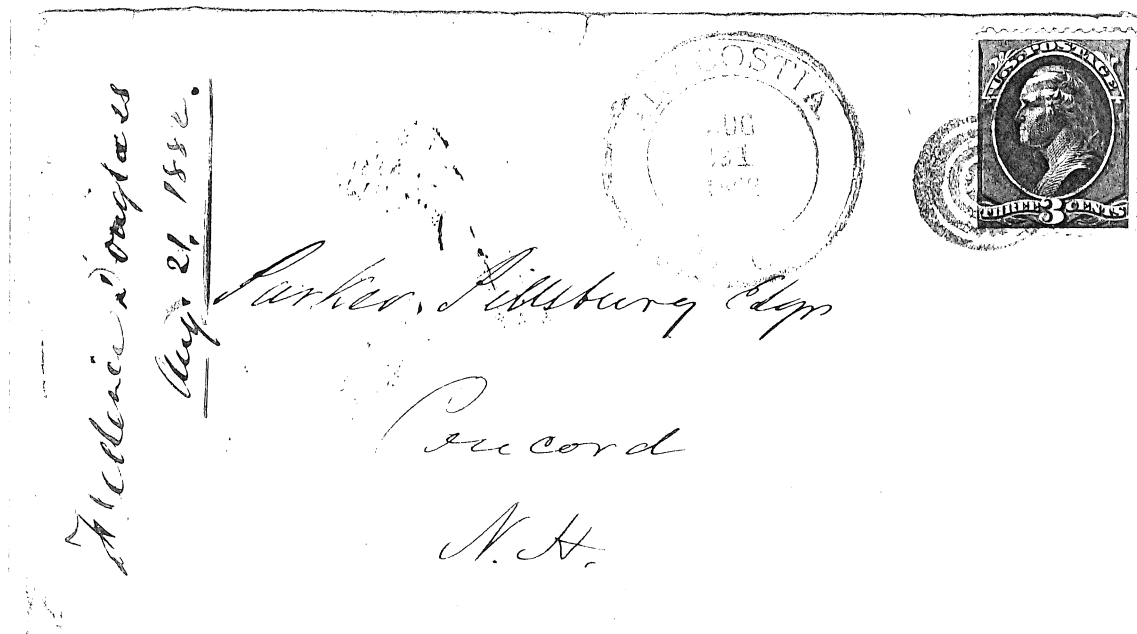 Frederick Douglass
Aug. 21. 1882.
ANACOSTIA
AUG
21
U.S. POSTAGE
THREE 3 CENTS
Parker Pillsbury Esqr
Concord
N.H.